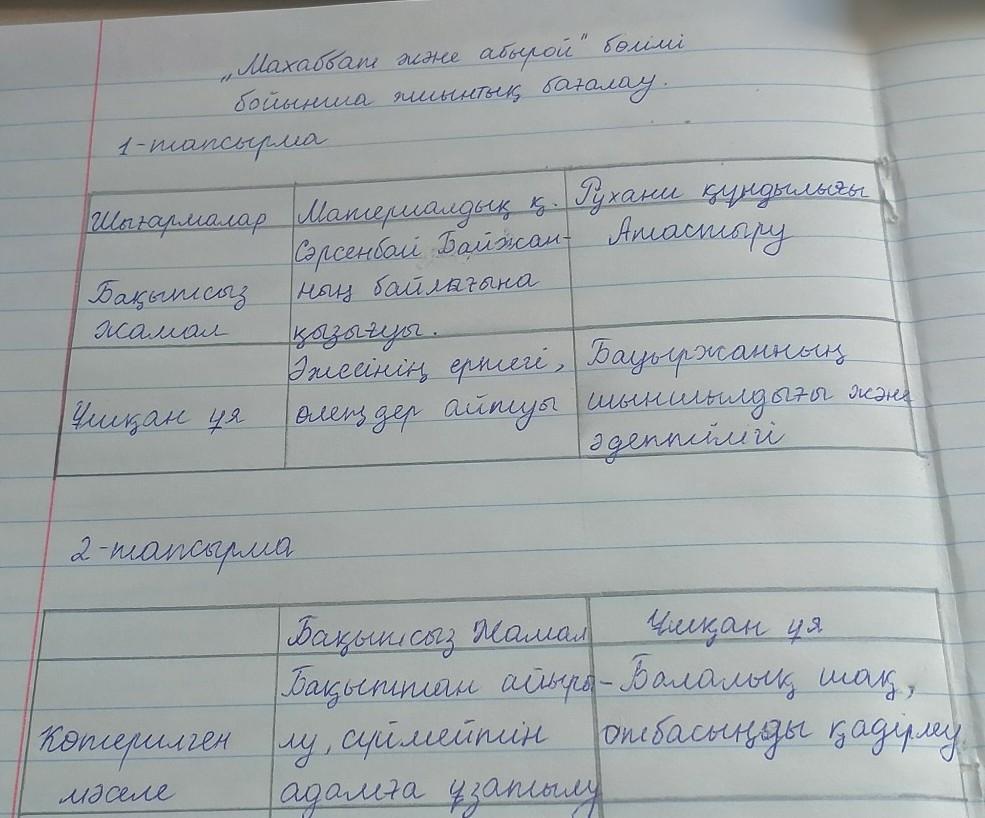 „Махаббат және абырой" бөлімі
бойынша жиынтық бағалау.
1-тапсырма
Шығармалар
Материалдық қ.
Рухани құндылығы
Бақытсыз
Жамал
Сәрсенбай Байжан-
ның байлығына
қызығуы.
Атастыру
Ұшқан ұя
Әжесінің ертегі,
өлеңдер айтуы
Бауыржанның
шыншылдығы және
әдептілігі
2-тапсырма
Бақытсыз Жамал
Ұшқан ұя
Көтерілген
мәселе
Бақыттан айыры-
лу, сүймейтін
адамға ұзатылу
Балалық шақ,
отбасыңды қадірлеу